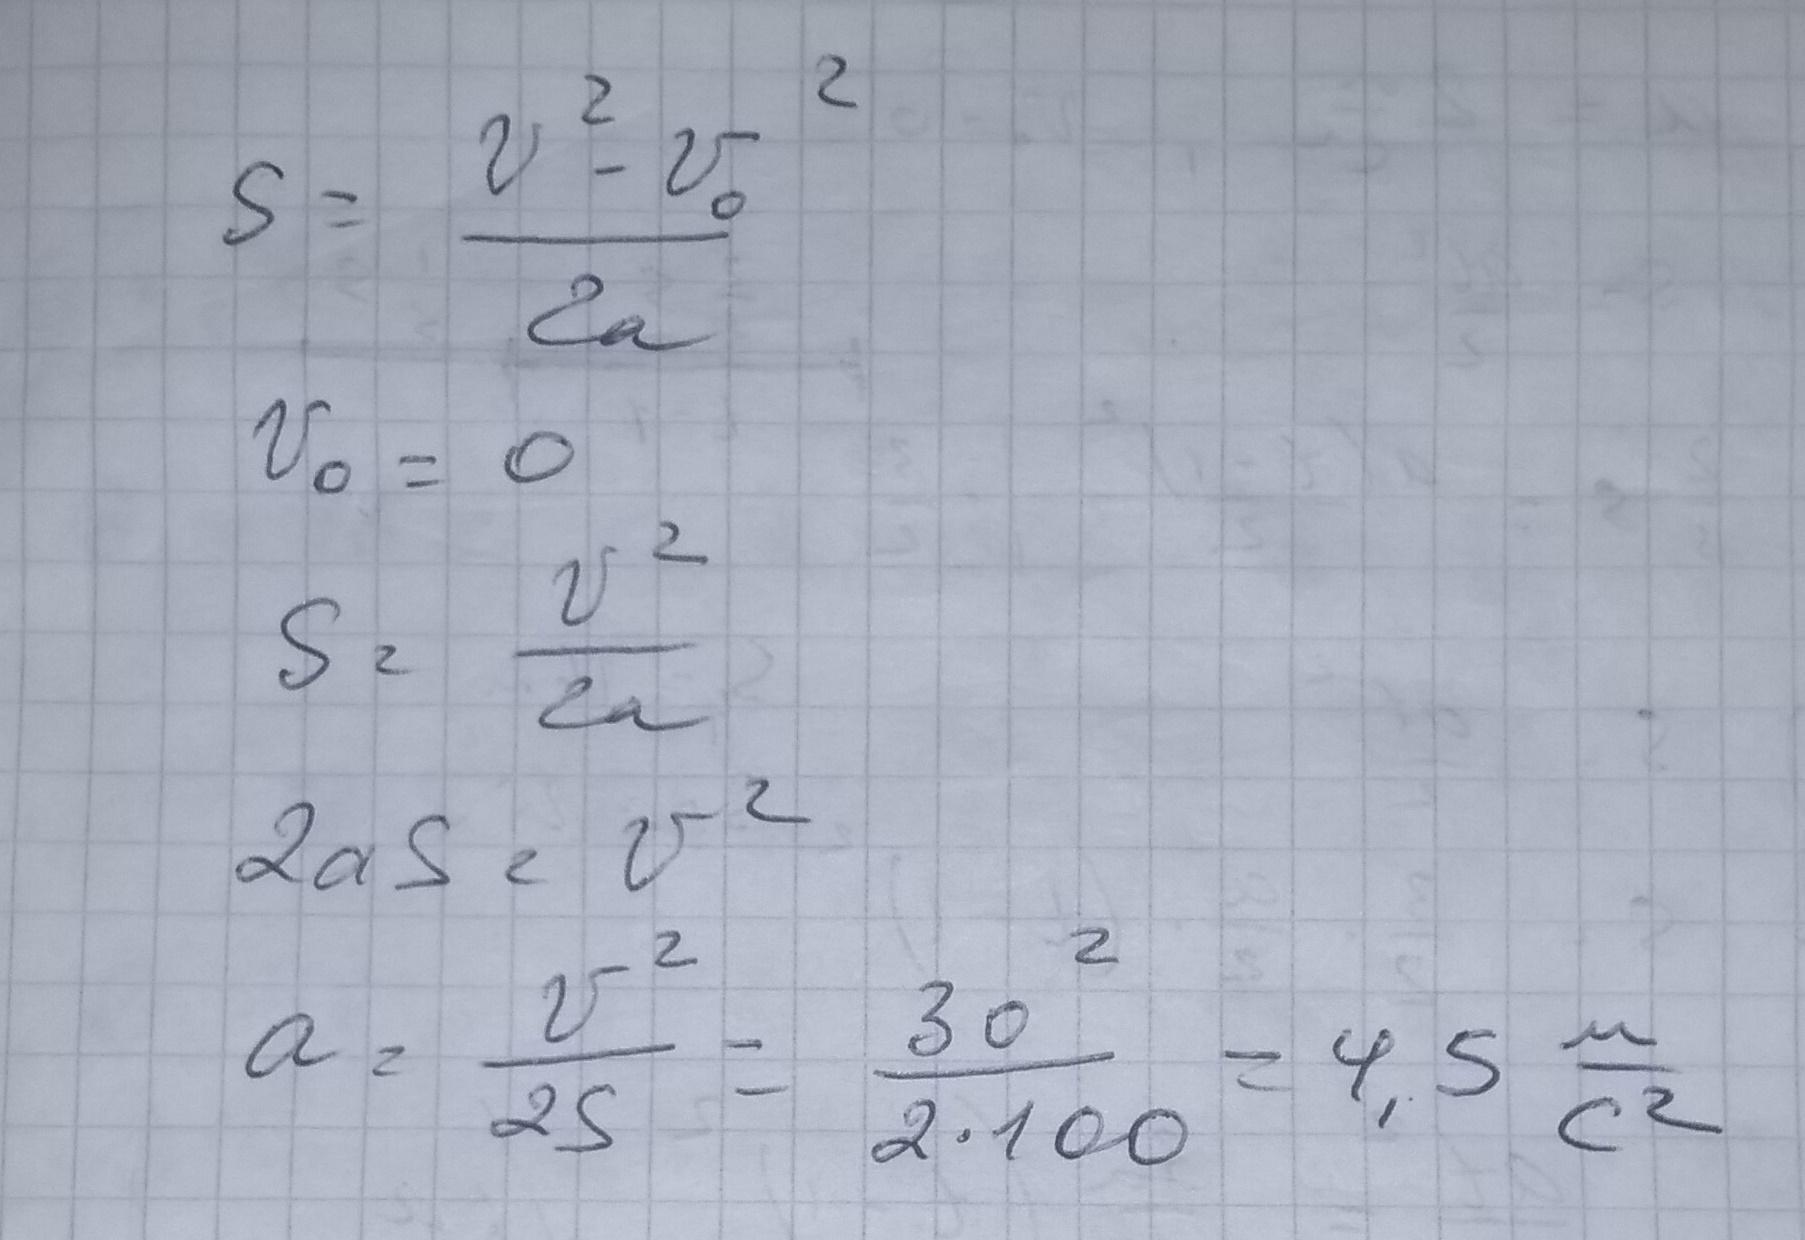 S = (v² - v₀²) / 2a
v₀ = 0
S = v² / 2a
2aS = v²
a = v² / 2S = 30² / 2·100 = 4,5 м/с²